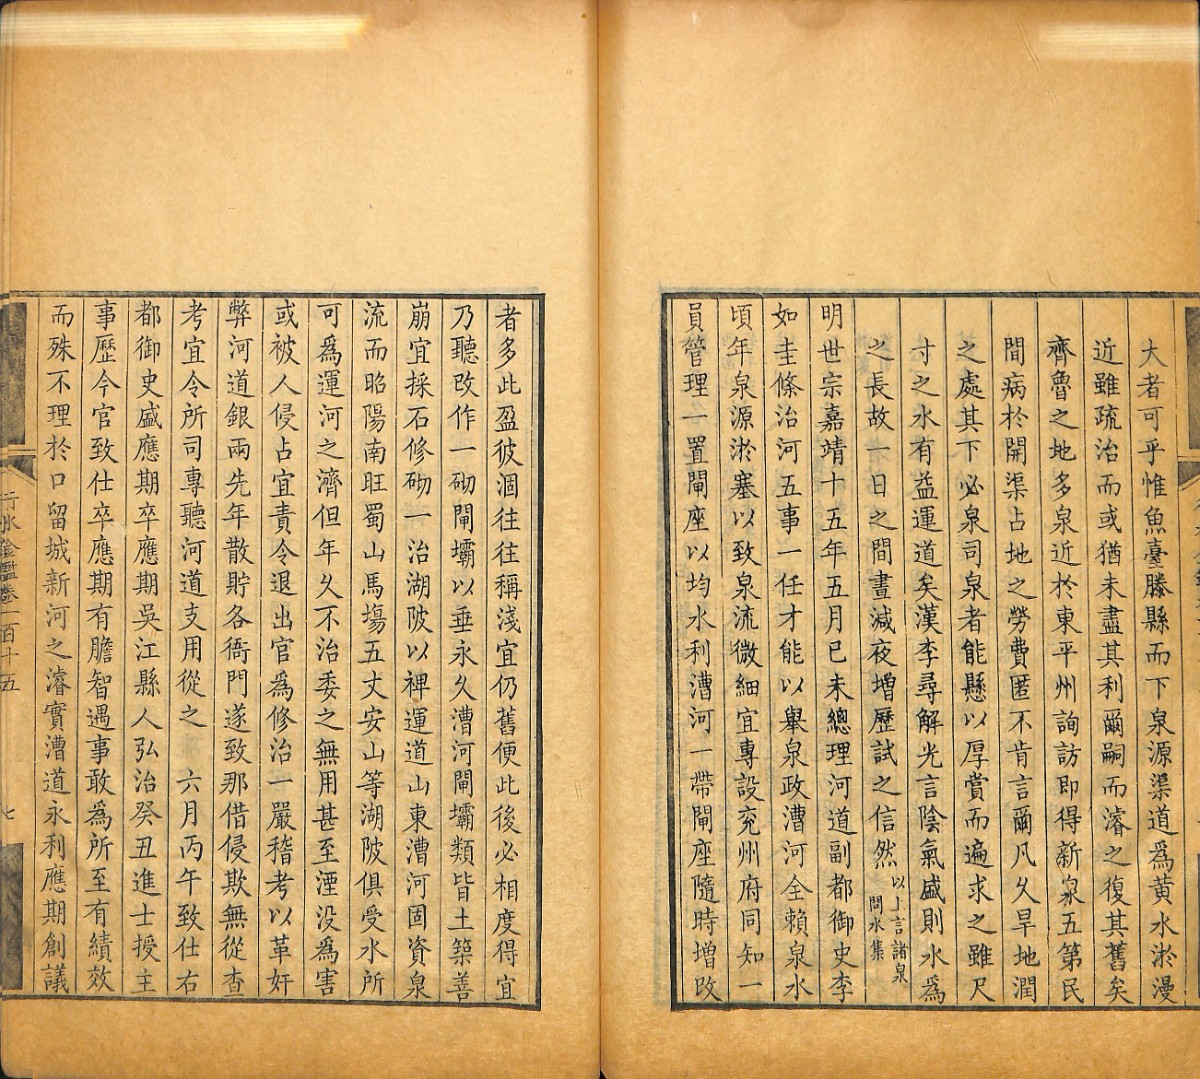 大者可乎惟魚臺滕縣而下泉源渠道為黄水淤漫
近雖疏治而或猶未盡其利爾嗣而濬之復其舊矣
齊魯之地多泉近於東平州詢訪即得新泉五第民
間病於開渠占地之勞費匿不肯言爾凡久旱地潤
之處其下必泉司泉者能懸以厚賞而遍求之雖尺
寸之水有益運道矣漢李尋解光言陰氣盛則水為
之長故一日之間晝減夜增歷試之信然以上言諸泉問水集
明世宗嘉靖十五年五月已未總理河道副都御史李
如圭條治河五事一任才能以舉泉政漕河全賴泉水
頃年泉源淤塞以致泉流微細宜專設兖州府同知一
員管理一置閘座以均水利漕河一帶閘座隨時增改
者多此盈彼涸往往稱淺宜仍舊便此後必相度得宜
乃聽改作一砌閘壩以垂永久漕河閘壩類皆土築善
崩宜採石修砌一治湖陂以裨運道山東漕河固資泉
流而昭陽南旺蜀山馬塲五丈安山等湖陂俱受水所
可為運河之濟但年久不治委之無用甚至湮没為害
或被人侵占宜責令退出官為修治一嚴稽考以革奸
弊河道銀兩先年散貯各衙門遂致那借侵欺無從查
考宜令所司專聽河道支用從之　六月丙午致仕右
都御史盛應期卒應期吳江縣人弘治癸丑進士授主
事歷今官致仕卒應期有膽智遇事敢為所至有績效
而殊不理於口留城新河之濬實漕道永利應期創議
行水金鑑卷一百十五
七